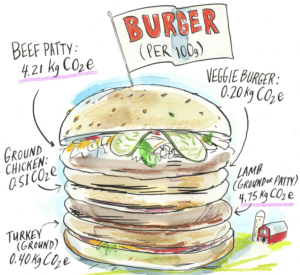 BURGER
(PER 100g)
BEEF PATTY:
4.21 Kg CO2e
VEGGIE BURGER:
0.20 Kg CO2e
GROUND
CHICKEN:
0.51 CO2e
LAMB
(GROUND OR PATTY)
4.75 Kg CO2e
TURKEY
(GROUND)
0.40 Kg CO2e